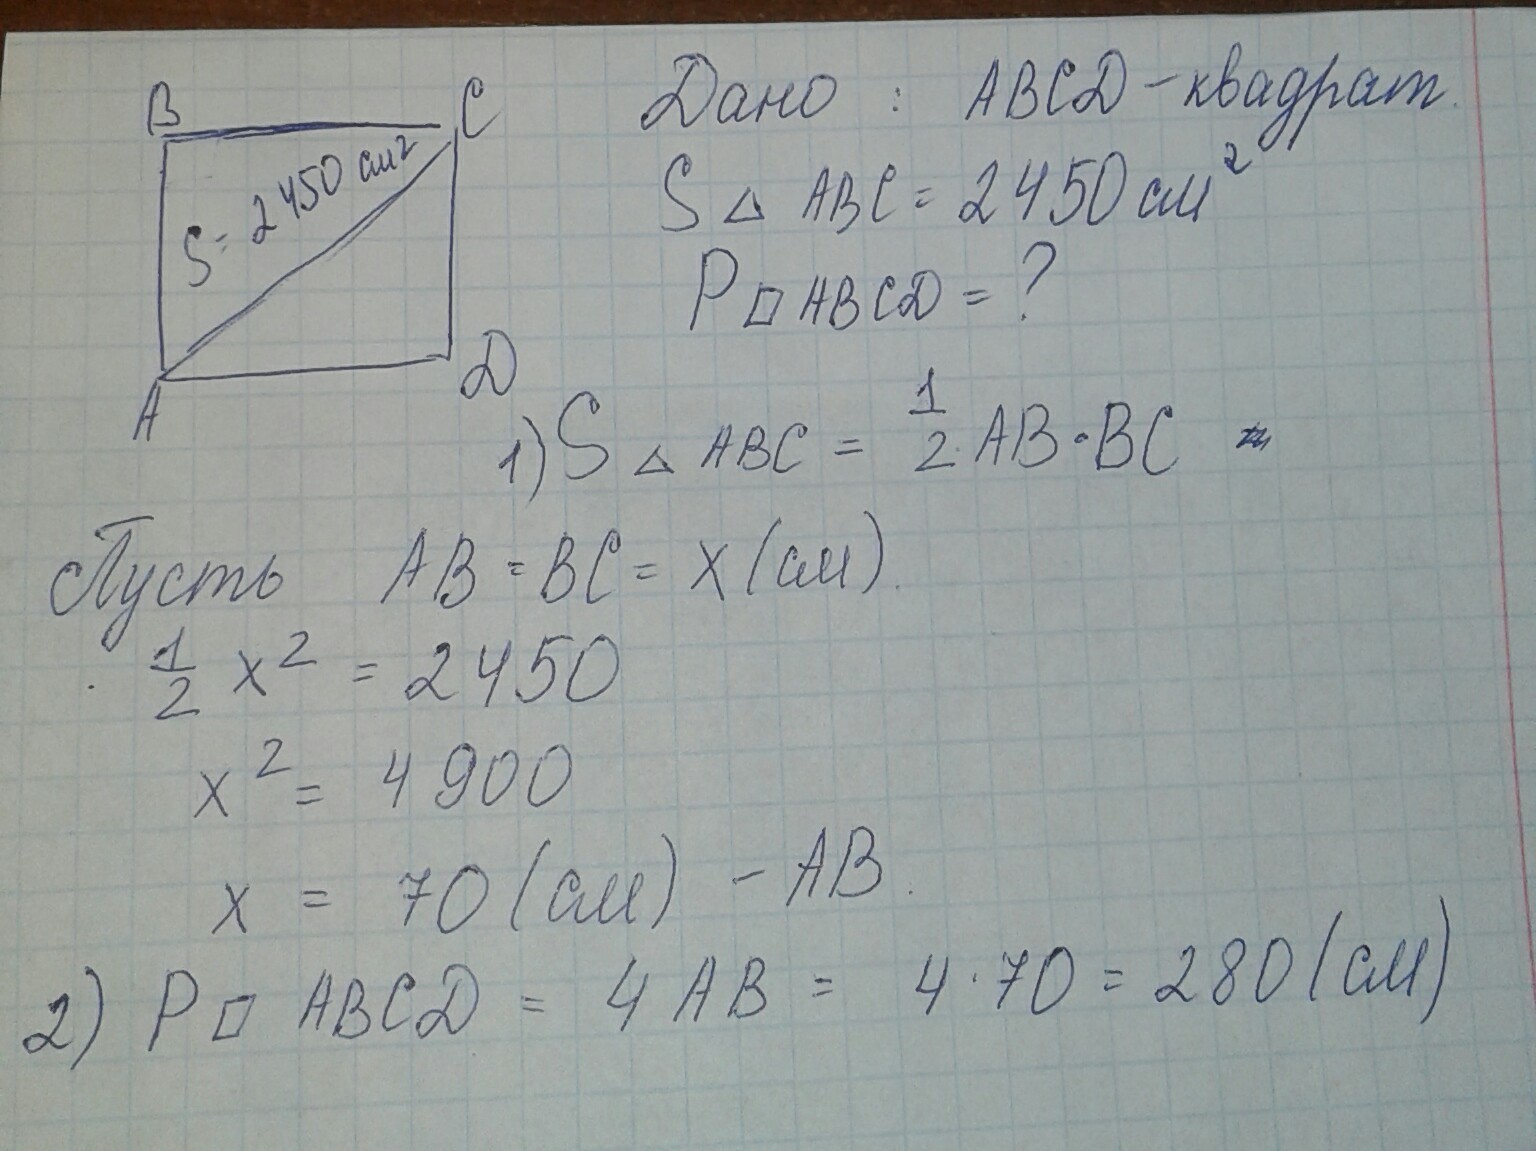 B
C
S = 2450 см²
A
D
Дано : ABCD – квадрат.
S △ ABC = 2450 см²
P □ ABCD = ?
1) S △ ABC = 1/2 AB · BC
Пусть AB = BC = x (см).
1/2 x² = 2450
x² = 4900
x = 70 (см) – AB.
2) P □ ABCD = 4 AB = 4 · 70 = 280 (см)